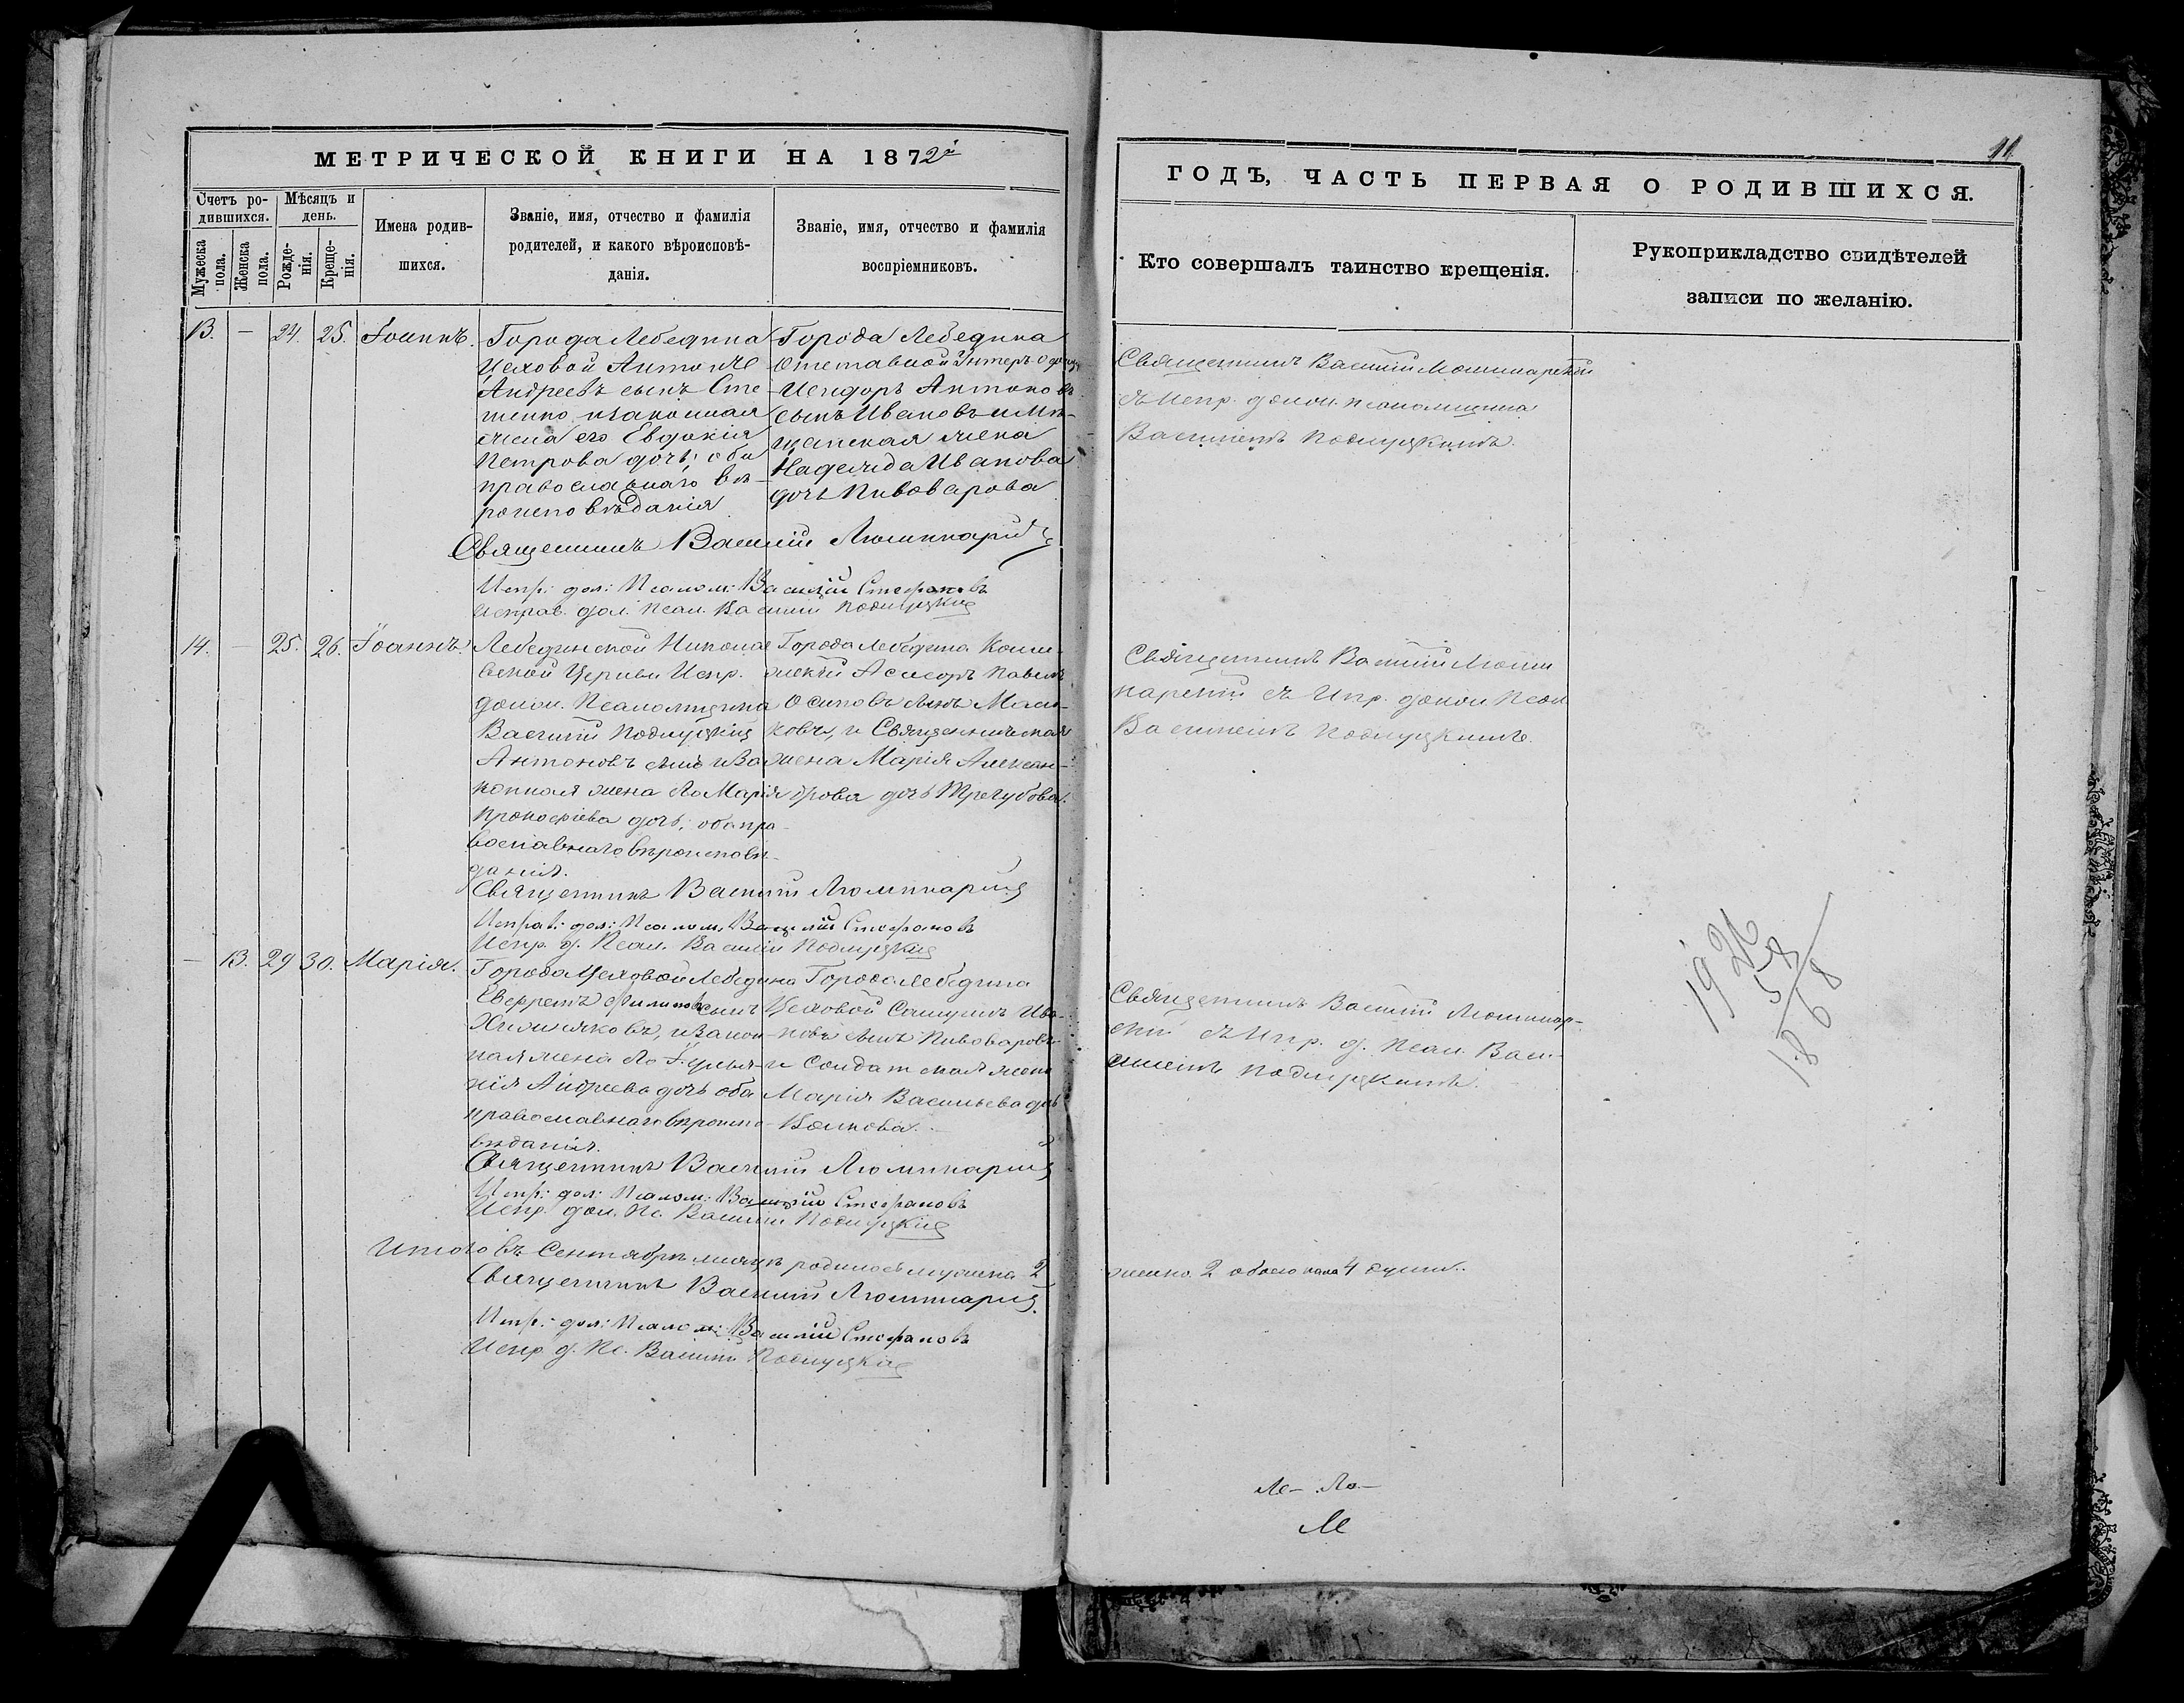 МЕТРИЧЕСКОЙ КНИГИ НА 1872й
Счетъ родившихся.
Мѣсяцъ и день.
Мужеска пола.
Женска пола.
Рожденія.
Крещенія.
Имена родившихся.
Званіе, имя, отчество и фамилія
родителей, и какого вѣроисповѣ-
данія.
Званіе, имя, отчество и фамилія
воспріемниковъ.
13. — 24. 25. Іоаннъ.
Города Лебедина
Цеховой Антоній
Андреевъ сынъ Сте-
ценко, и законная
жена его Евдокія
Петрова дочь; оба
православнаго вѣ-
роисповѣданія
Города Лебедина
Отставной Унтеръ офицеръ
Исидоръ Антоновъ
сынъ Ивановъ и Мѣ-
щанская жена
Надежда Иванова
дочь Пивоварова
Священникъ Василій
Испр: дол: Псалом: Василій Стефановъ
Исправ. дол. Псал. Василій
14. — 25. 26. Іоаннъ.
Лебединской Николае
вской Церкви Испр.
должн. Псаломщика
Василій
Антоновъ сынъ и за
конная жена его Марія
Прокофіева дочь; оба пра-
вославнаго вѣроисповѣ-
данія.
Города Лебедина Колле-
жскій Асесоръ Павелъ
Осиповъ сынъ
и Священническая
жена Марія Алексан-
дрова дочь Трегубова.
Священникъ Василій
Исправ: дол: Псалом. Василій Стефановъ
Испр. д. Псал. Василій
— 13. 29 30. Марія.
Города Цеховой Лебедина
Ефремъ Филиповъ сынъ
и закон-
ная жена его Іулья-
нія Андреева дочь оба
православнаго вѣроиспо-
вѣданія.
Города Лебедина
Цеховой Самуилъ Ива-
новъ сынъ Пивоваровъ
и Солдатская жена
Марія Васильева дочь
Волкова.
Священникъ Василій
Испр: дол: Псалом: Василій Стефановъ
Испр. дол. Пс. Василій
Итого въ Сентябрѣ месяцѣ родилось мужеска 2
Священникъ Василій
Испр: дол: Псалом: Василій Стефановъ
Испр. д. Пс. Василій
11
ГОДЪ, ЧАСТЬ ПЕРВАЯ О РОДИВШИХСЯ.
Кто совершалъ таинство крещенія.
Рукоприкладство свидѣтелей
записи по желанію.
Священникъ Василій
съ Испр. должн. псаломщика
Василіемъ
Священникъ Василій
съ Испр. должн. Псал
Василіемъ
Священникъ Василій
съ Испр. д. Псал. Васи-
ліемъ
1926
58
1868
женска 2 обоего пола 4 души.